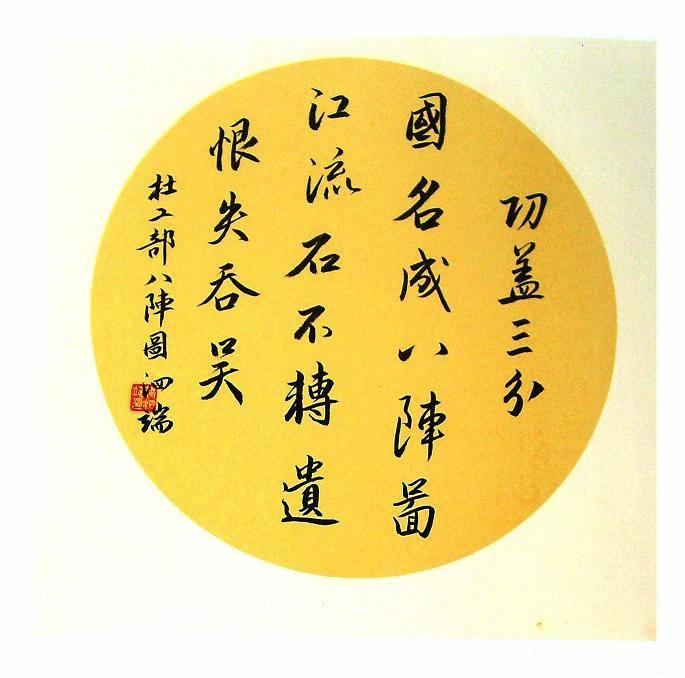 功盖三分
國名成八陣啚
江流石不轉遺
恨失吞吴
杜工部八陣圖 泗瑞